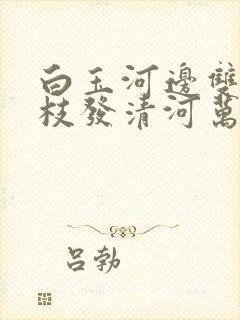 白玉河邊雙
枝發清河萬
呂勃